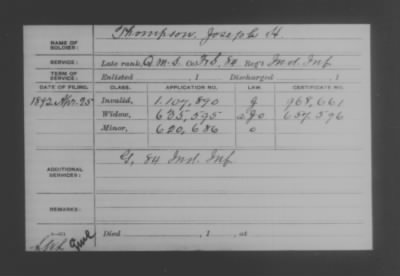 NAME OF SOLDIER: Thompson, Joseph H.
SERVICE: Late rank, Q.M.S. Co. F&S, 84 Reg't Ind. Inf
TERM OF SERVICE: Enlisted , 1 Discharged , 1
DATE OF FILING. CLASS. APPLICATION NO. LAW. CERTIFICATE NO.
1892 Nov. 25 Invalid, 1.107.890 g 968.661
Widow, 635,595 657.596
Minor, 620,686 o
ADDITIONAL SERVICES: G, 84 Ind. Inf
REMARKS:
Died , 1 , at